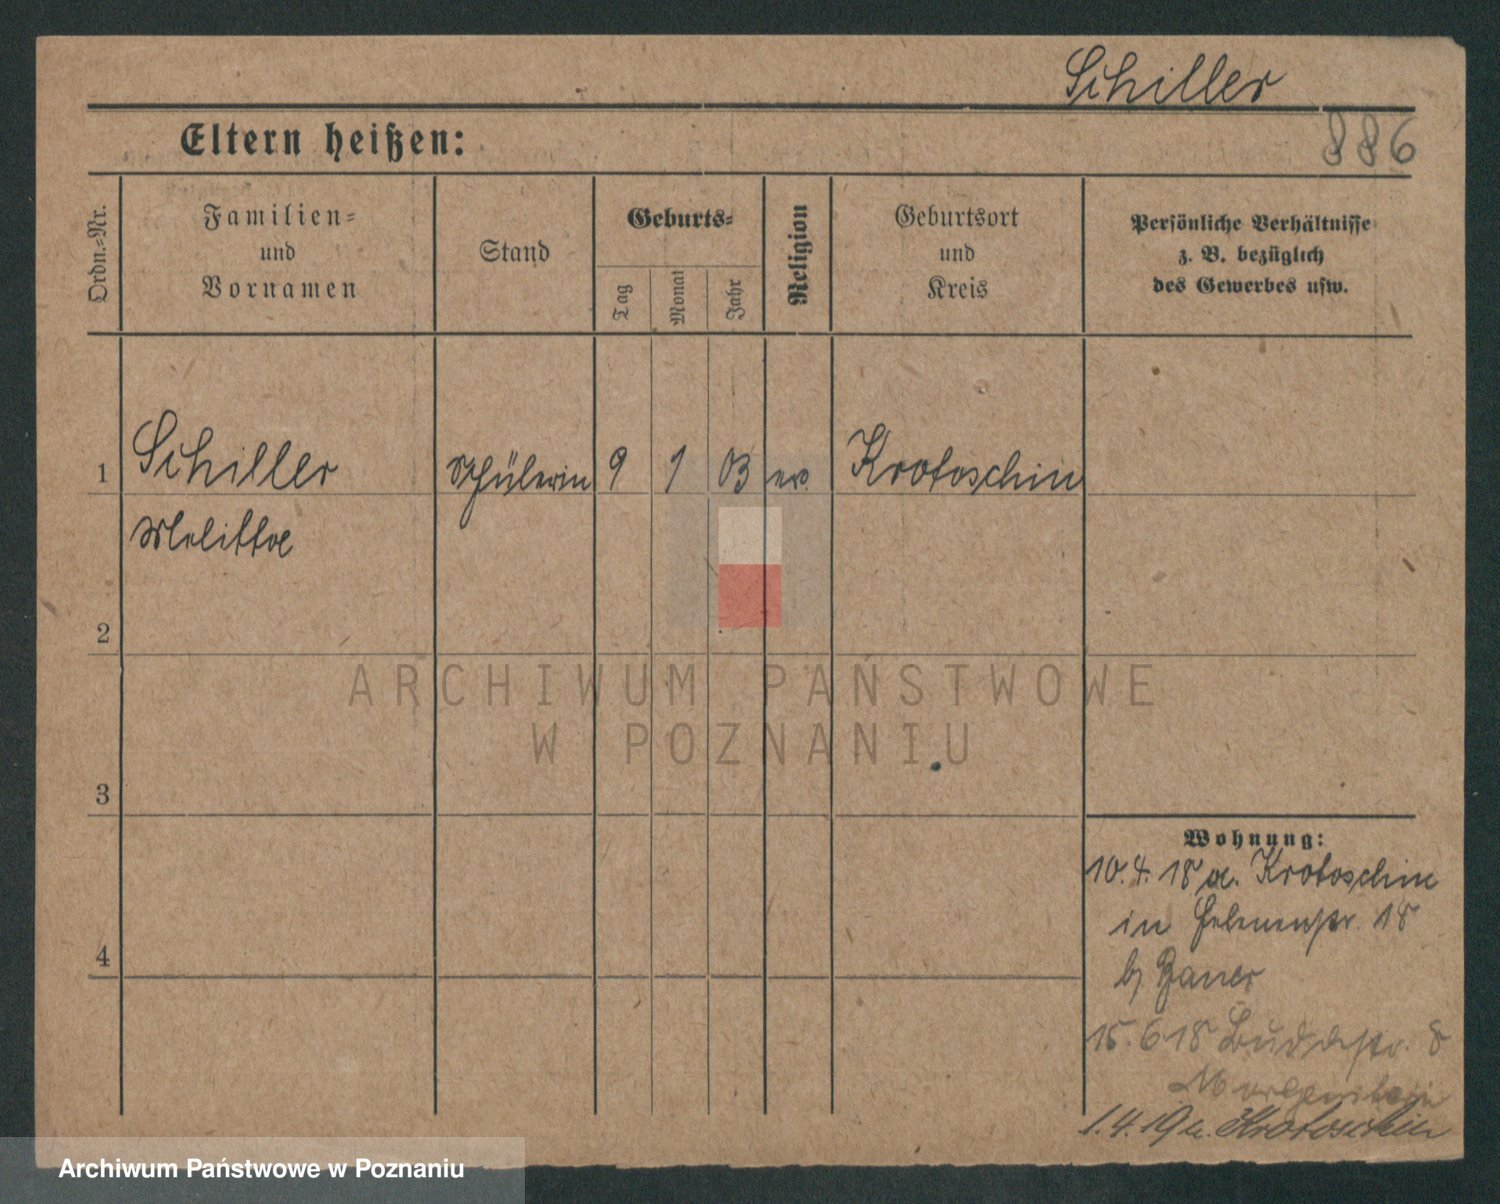 Schiller
886
Eltern heißen:
Ordn.=Nr.
Familien=
und
Vornamen
Stand
Geburts=
Tag
Monat
Jahr
Religion
Geburtsort
und
Kreis
Persönliche Verhältnisse
z. B. bezüglich
des Gewerbes usw.
1 Schiller Schülerin 9 1 03 ev. Krotoschin
Melitta
2
3
4
Wohnung:
10.4.18 a. Krotoschin
in Helenenstr. 18
b/ Bauer
15.6.18 Buddestr. 8
Morgenstern
1.4.19 n. Krotoschin
ARCHIWUM PAŃSTWOWE
W POZNANIU
Archiwum Państwowe w Poznaniu